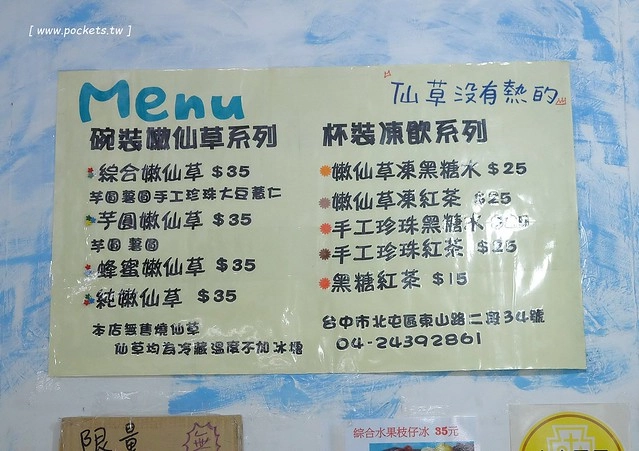 [ www.pockets.tw ]
Menu
仙草沒有熱的
碗裝嫩仙草系列
綜合嫩仙草 $35
芋圓薯圓手工珍珠大豆薏仁
芋圓嫩仙草 $35
芋圓 薯圓
蜂蜜嫩仙草 $35
純嫩仙草 $35
本店無售燒仙草
仙草均為冷藏溫度不加冰糖
杯裝凍飲系列
嫩仙草凍黑糖水 $25
嫩仙草凍紅茶 $25
手工珍珠黑糖水 $25
手工珍珠紅茶 $25
黑糖紅茶 $15
台中市北屯區東山路二段34號
04-24392861
限量
綜合水果枝仔冰 35元